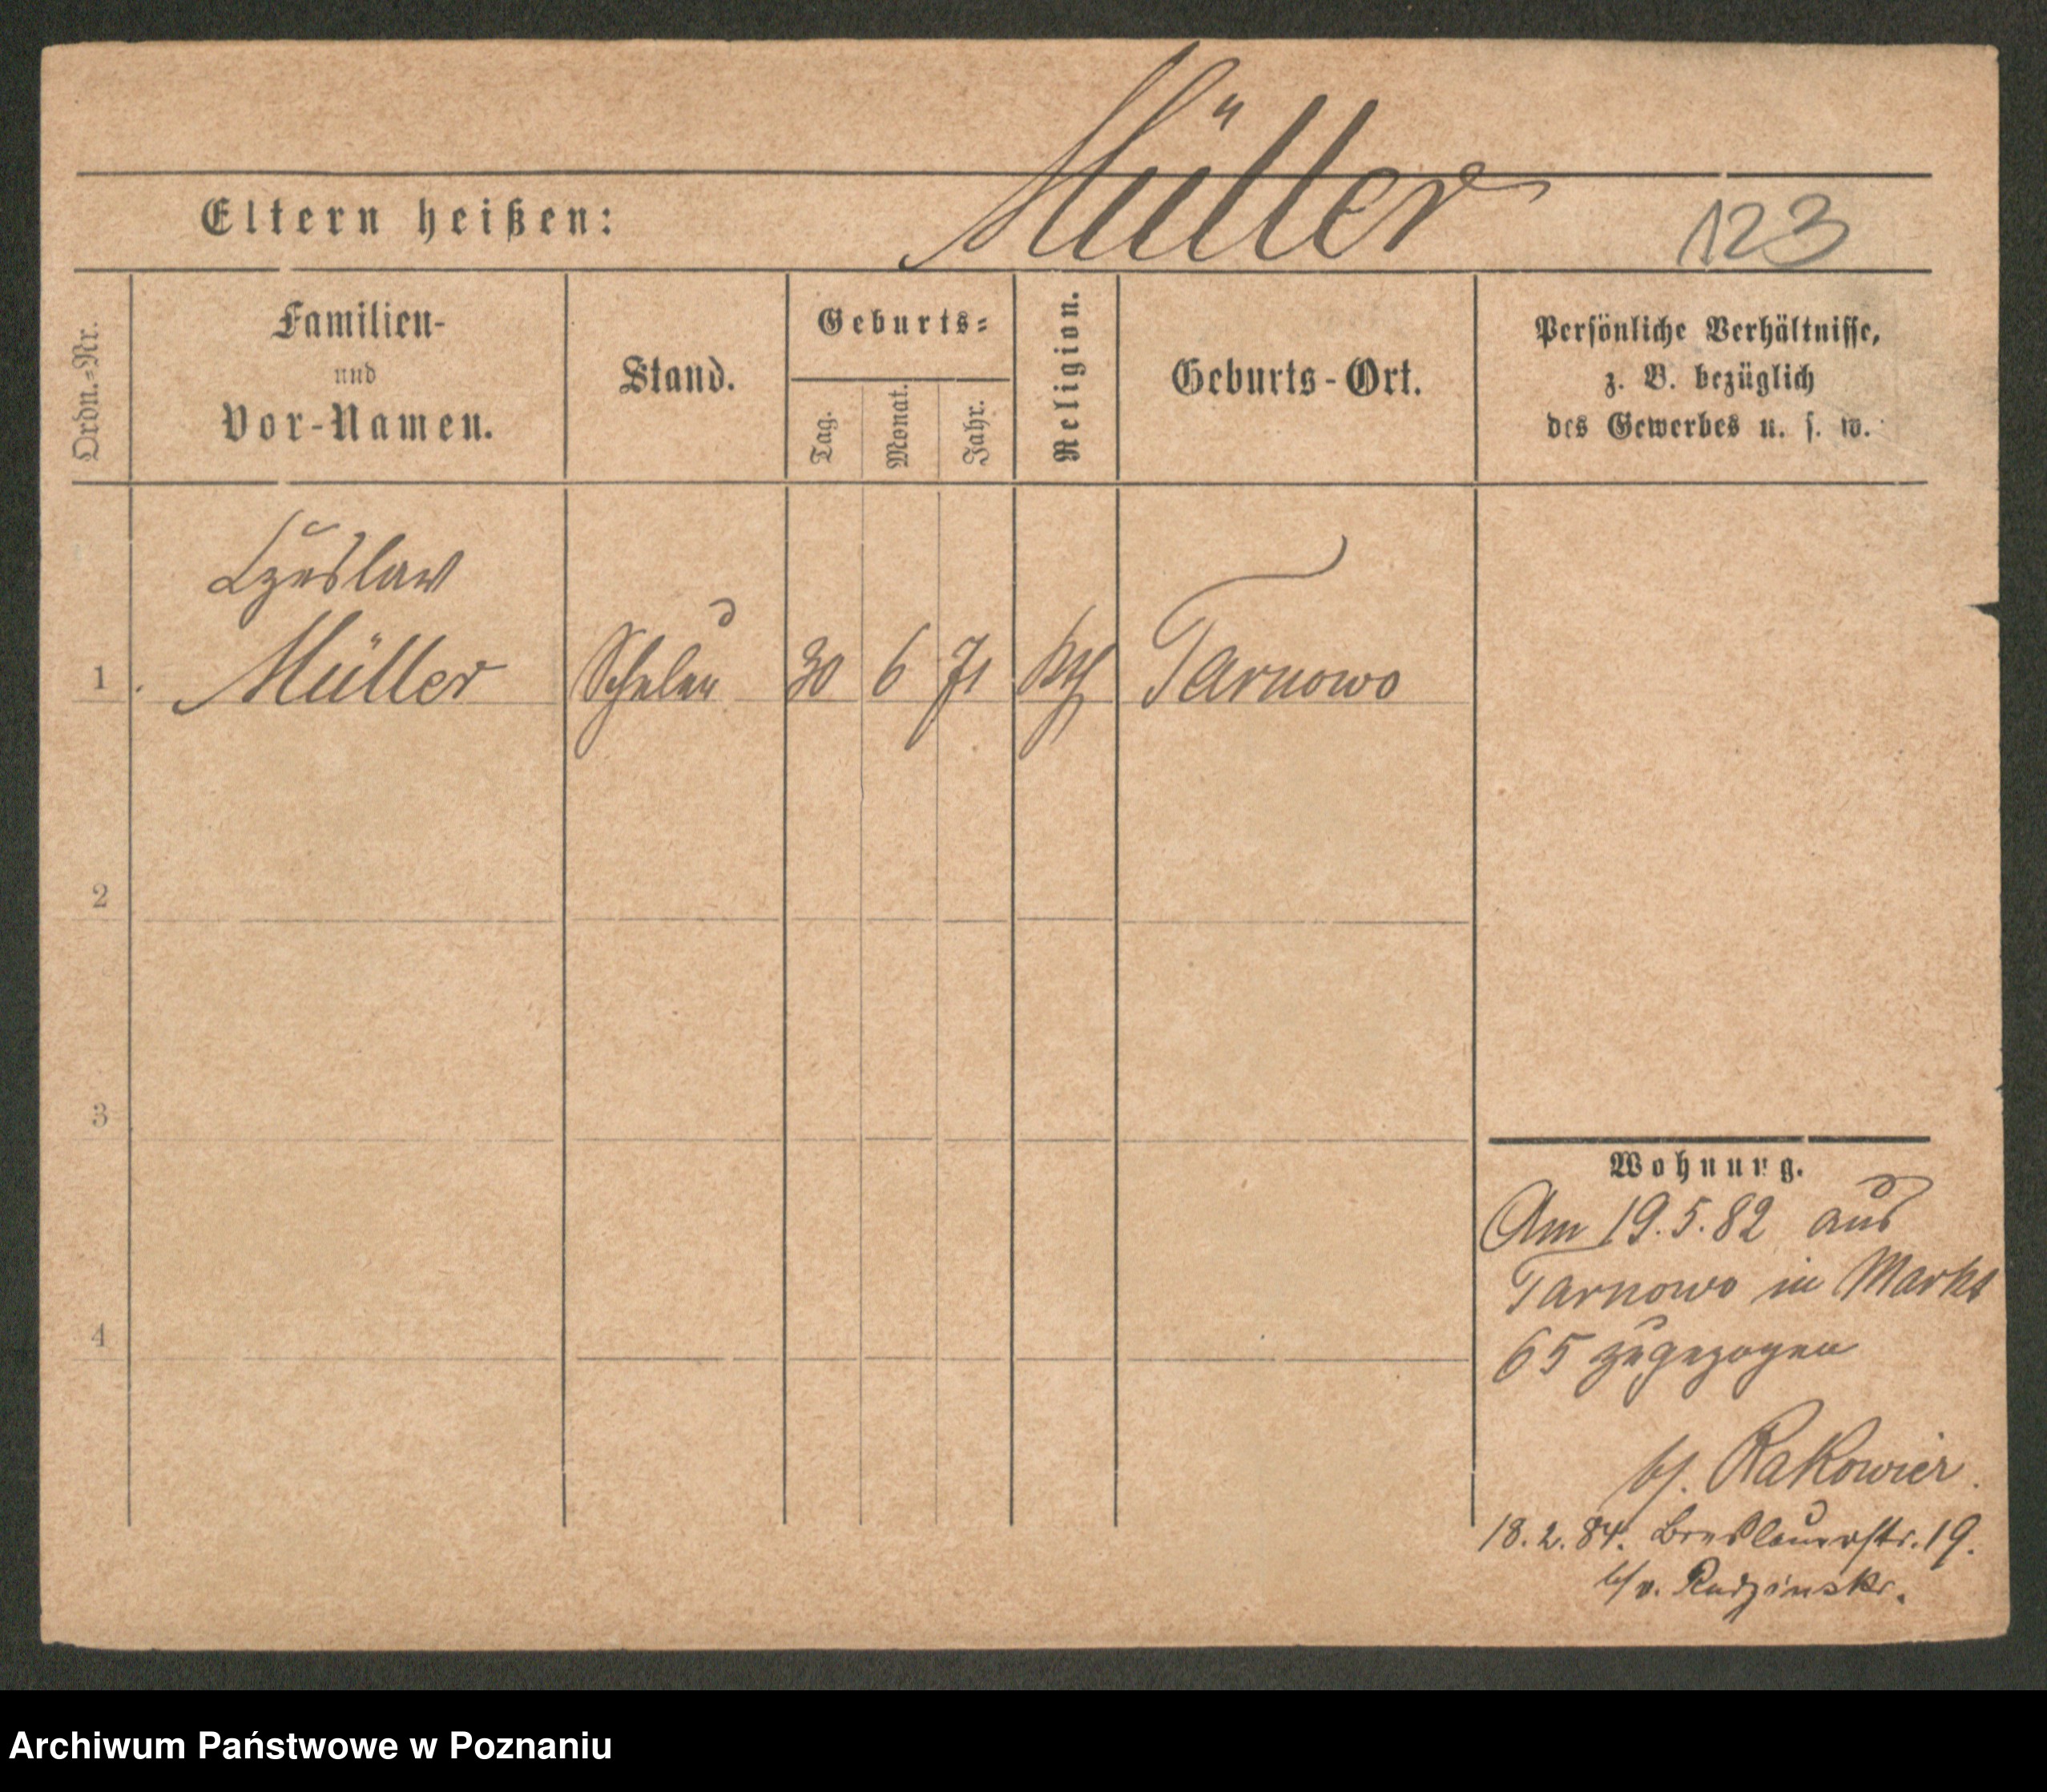 Müller
Eltern heißen:
123
Ordn.-Nr.
Familien-
und
Vor-Namen.
Stand.
Geburts-
Tag.
Monat.
Jahr.
Religion.
Geburts-Ort.
Persönliche Verhältnisse,
z. B. bezüglich
des Gewerbes u. s. w.
Czeslaw
1 Müller 30 6 71 kth Tarnowo
2
3
4
Wohnung.
Am 19.5.82 aus
Tarnowo in Markt
65 zugezogen
b/. Rakowicz.
18.2.84. Breslauerstr. 19.
b/ v. Rudzinski.
Archiwum Państwowe w Poznaniu